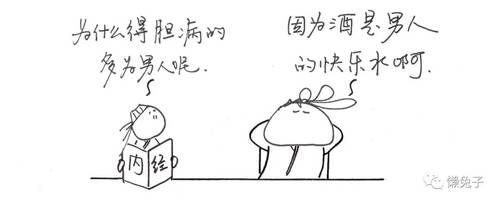 为什么得胆病的
多为男人呢.
因为酒是男人
的快乐水啊.
内经
懒兔子